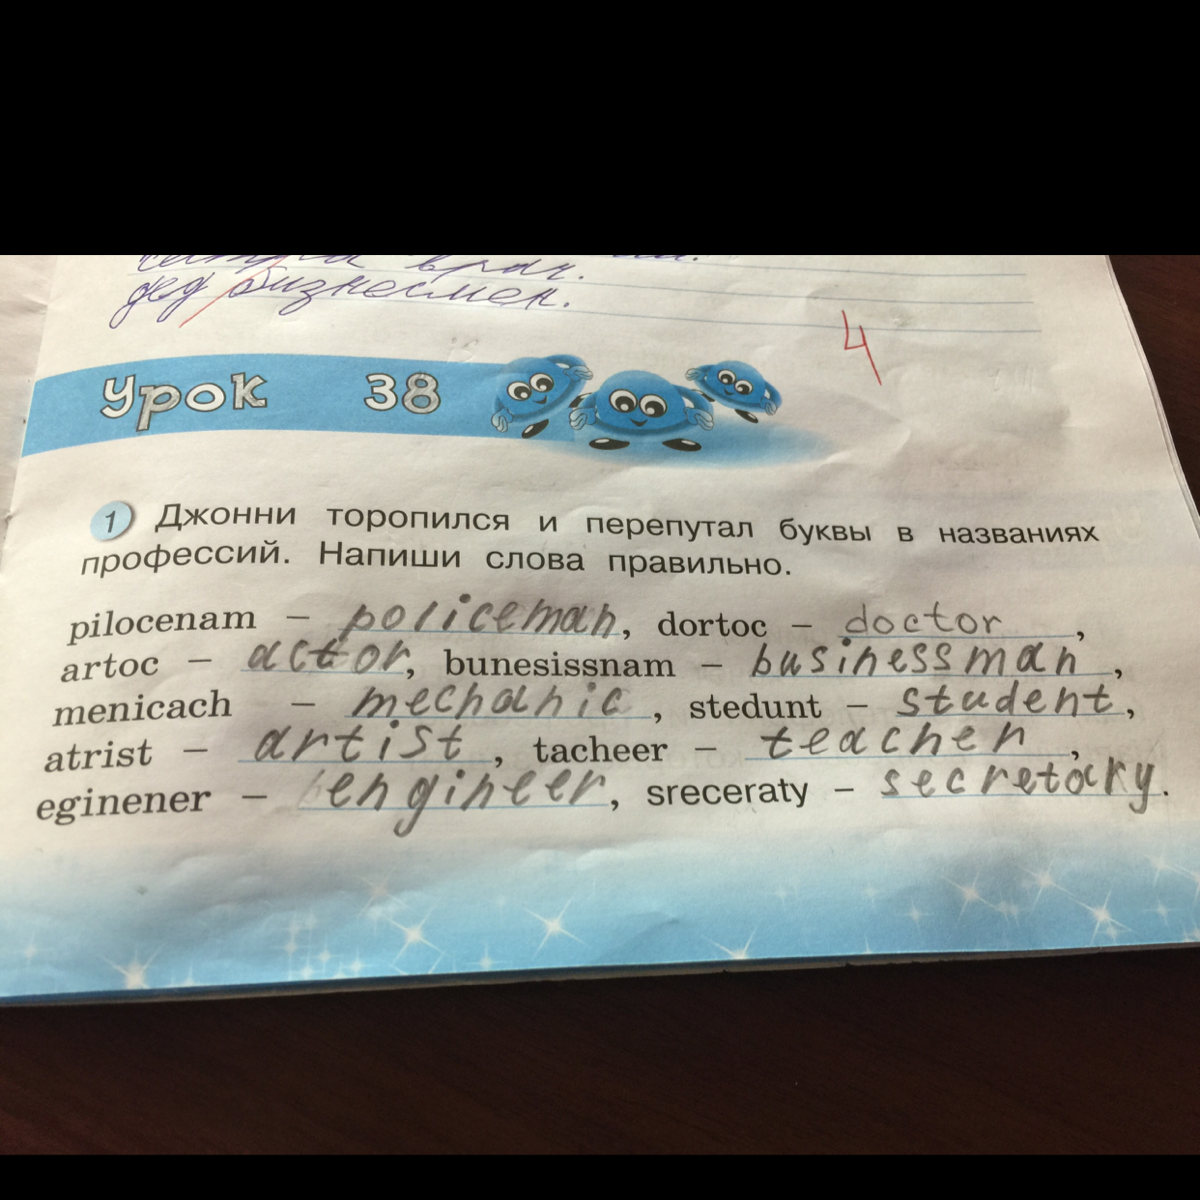 врач.
дед бизнесмен.
4
Урок 38
1 Джонни торопился и перепутал буквы в названиях
профессий. Напиши слова правильно.
pilocenam – policeman, dortoc – doctor,
artoc – actor, bunesissnam – businessman,
menicach – mechanic, stedunt – student,
atrist – artist, tacheer – teacher,
eginener – engineer, sreceraty – secretary.